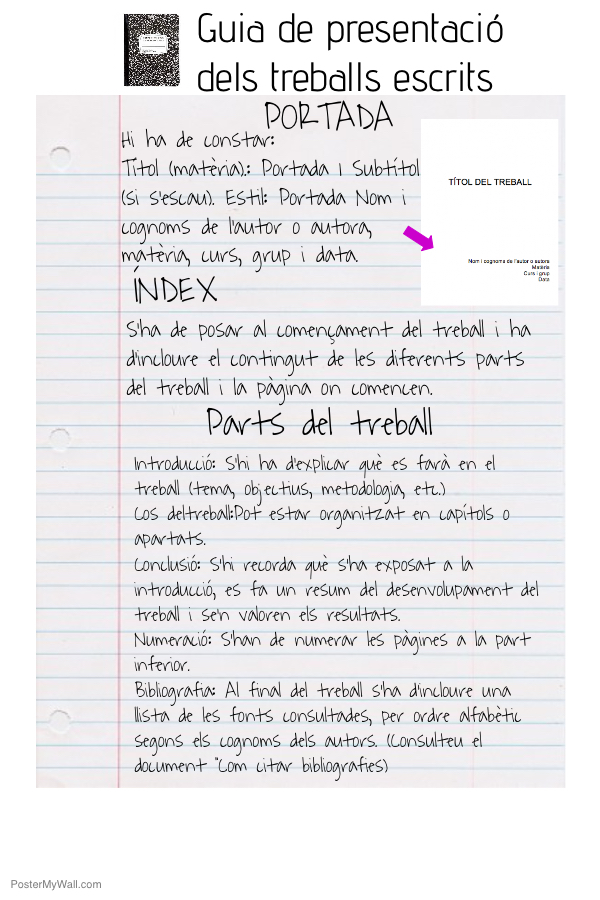 Guia de presentació
dels treballs escrits
PORTADA
Hi ha de constar:
Títol (matèria).: Portada 1 Subtítol
(si s'escau). Estil: Portada Nom i
cognoms de l'autor o autora,
matèria, curs, grup i data.
TÍTOL DEL TREBALL
Nom i cognoms de l'autor o autora
Matèria
Curs i grup
Data
ÍNDEX
S'ha de posar al començament del treball i ha
d'incloure el contingut de les diferents parts
del treball i la pàgina on comencen.
Parts del treball
Introducció: S'hi ha d'explicar què es farà en el
treball (tema, objectius, metodologia, etc.)
Cos deltreball:Pot estar organitzat en capítols o
apartats.
Conclusió: S'hi recorda què s'ha exposat a la
introducció, es fa un resum del desenvolupament del
treball i se'n valoren els resultats.
Numeració: S'han de numerar les pàgines a la part
inferior.
Bibliografia: Al final del treball s'ha d'incloure una
llista de les fonts consultades, per ordre alfabètic
segons els cognoms dels autors. (Consulteu el
document "Com citar bibliografies)
PosterMyWall.com